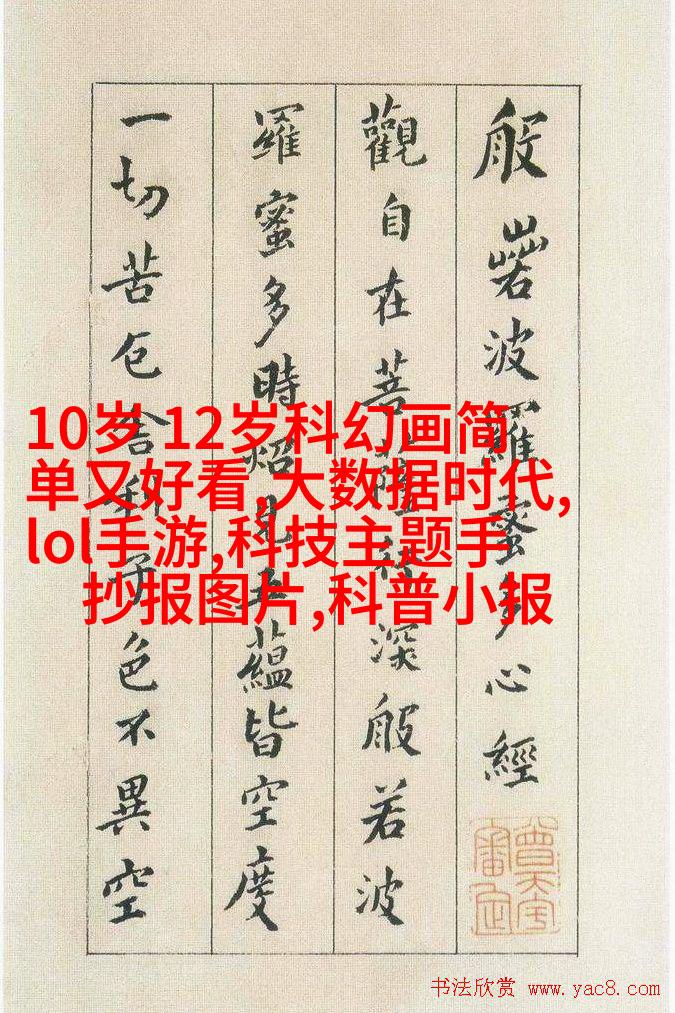 般若波羅蜜多心經
觀自在菩薩行深般若波
羅蜜多時照見五蘊皆空度
一切苦厄舍利子色不異空
10岁 12岁科幻画简
单又好看,大数据时代,
lol手游,科技主题手
抄报图片,科普小报
书法欣赏 www.yac8.com